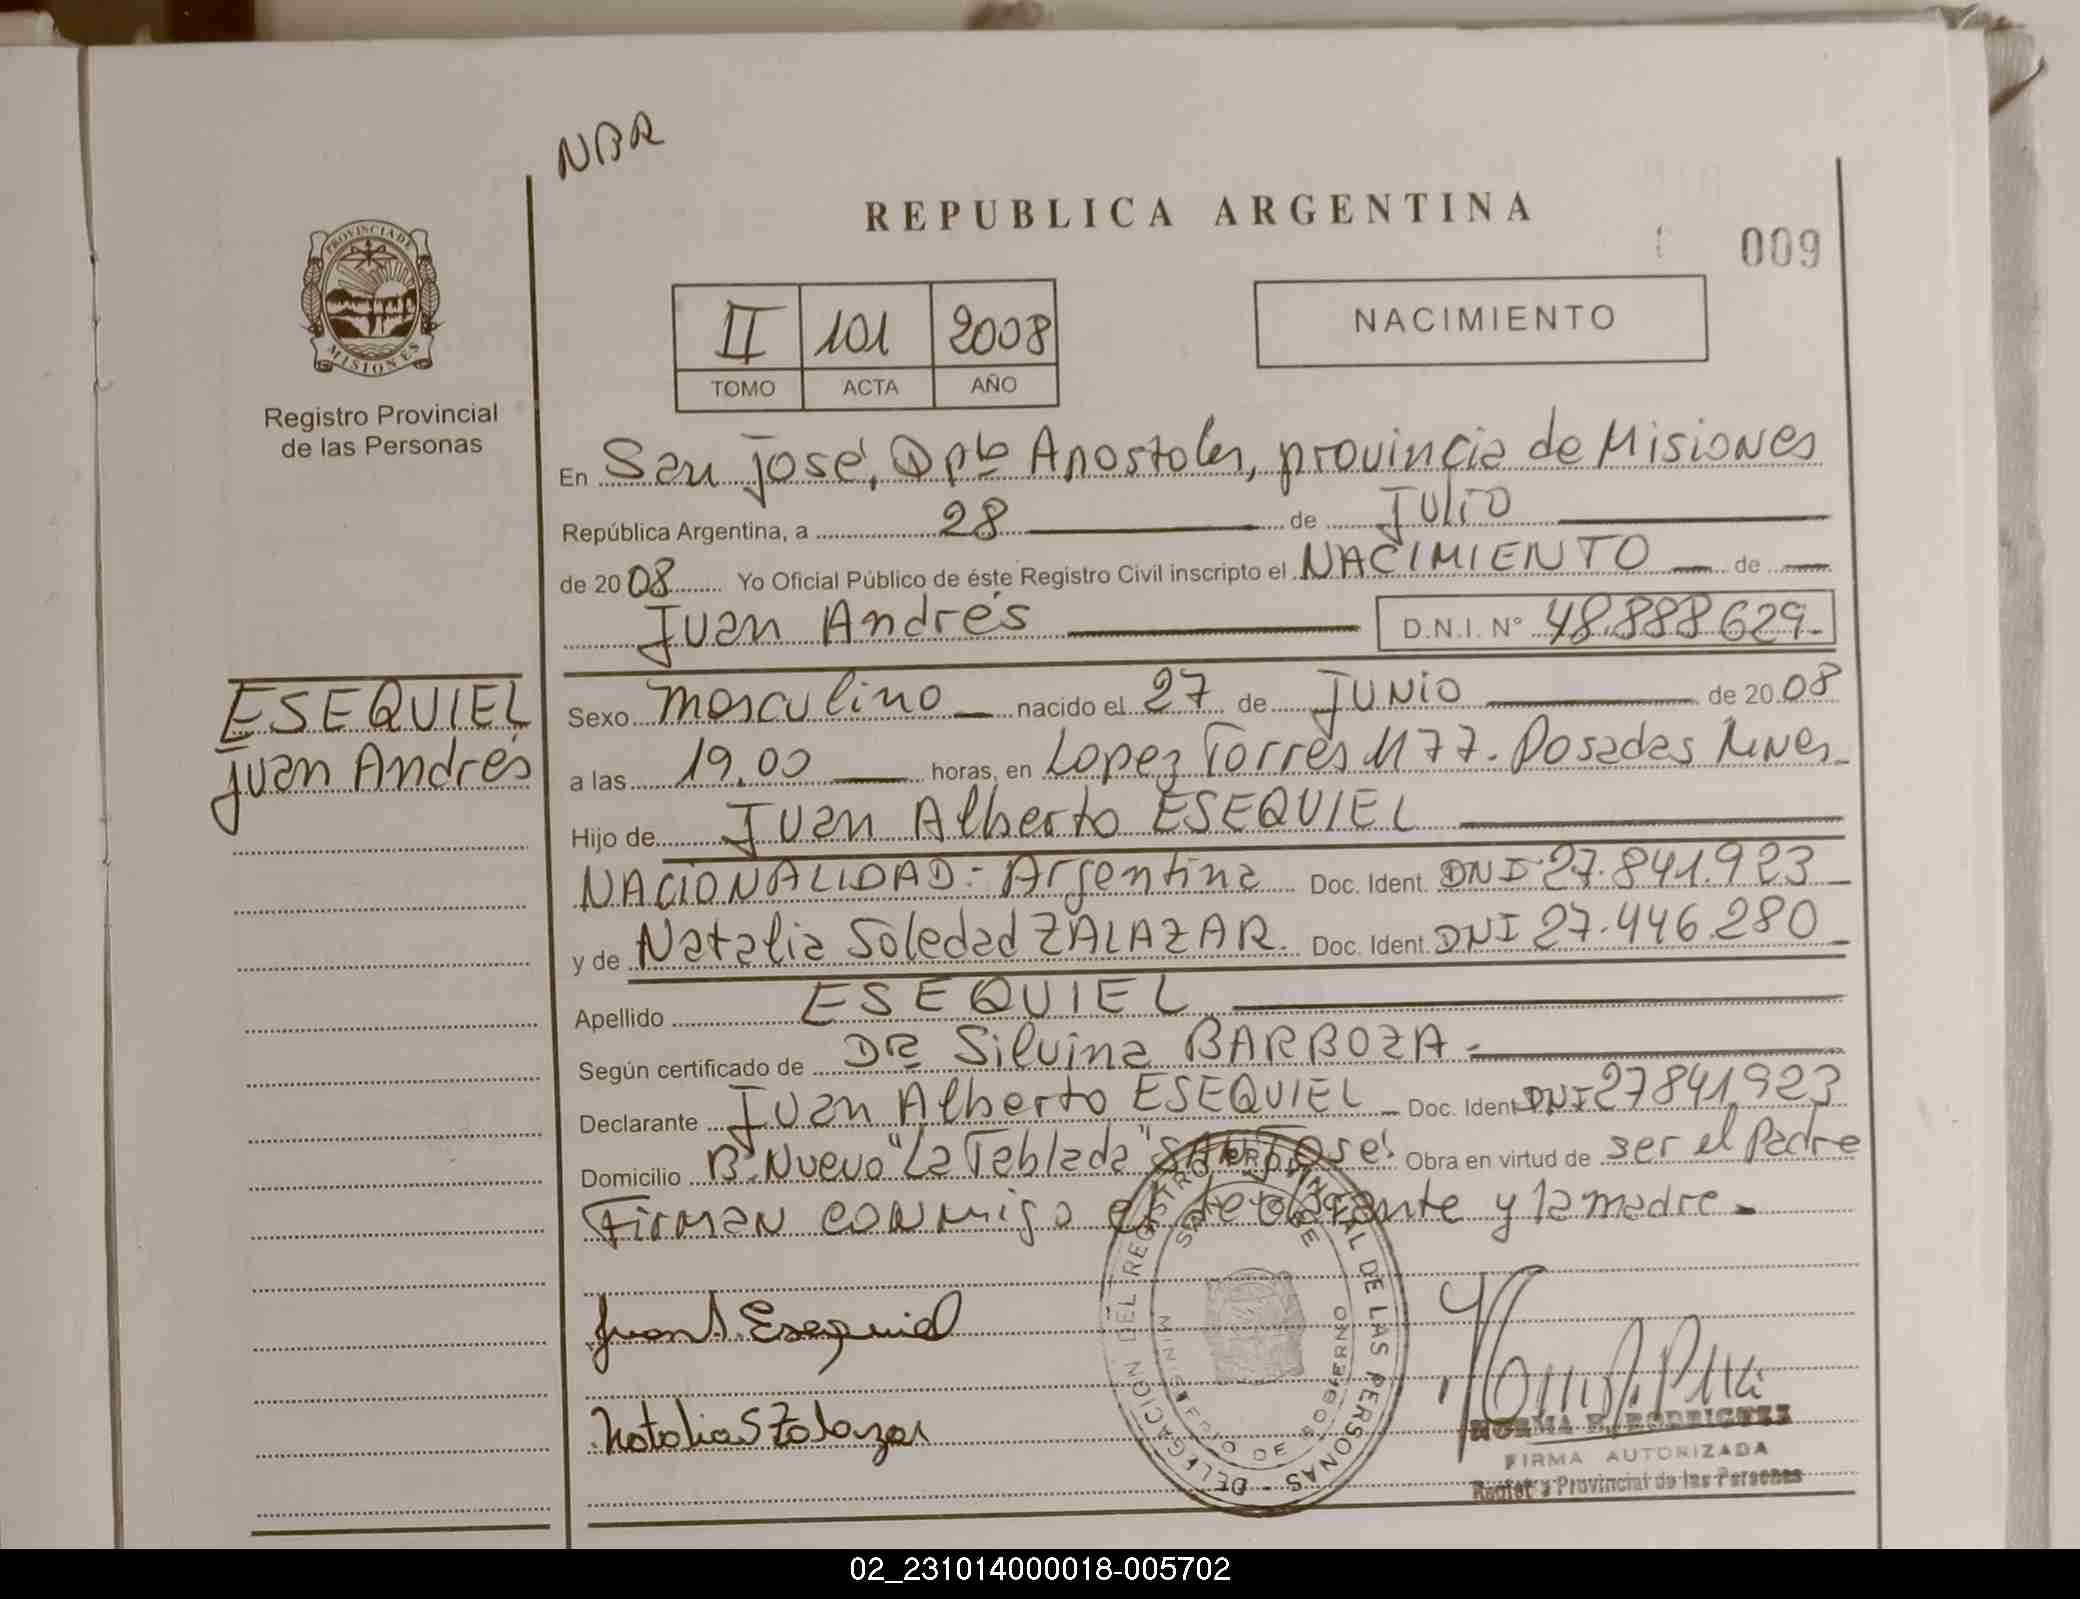 NBR
REPUBLICA ARGENTINA
009
PROVINCIA DE
MISIONES
Registro Provincial
de las Personas
II 101 2008
TOMO ACTA AÑO
NACIMIENTO
En San José, Dpto Apostoles, provincia de Misiones
República Argentina, a 28 de Julio
de 2008 Yo Oficial Público de éste Registro Civil inscripto el NACIMIENTO de
Juan Andrés D.N.I. Nº 48.888.629
ESEQUIEL
Juan Andrés
Sexo masculino nacido el 27 de JUNIO de 2008
a las 19.00 horas, en Lopez Torres 1177. Posadas Mnes.
Hijo de Juan Alberto ESEQUIEL
NACIONALIDAD:- Argentina Doc. Ident. DNI 27.841.923
y de Natalia Soledad ZALAZAR. Doc. Ident. DNI 27.446.280
Apellido ESEQUIEL
Según certificado de DRa Silvina BARBOZA.-
Declarante Juan Alberto ESEQUIEL Doc. Ident DNI 27841923
Domicilio Bº Nuevo "La Tablada" SAN José. Obra en virtud de ser el Padre
Firman conmigo el declarante y la madre.-
Juan A. Esequiel
Natalia S Zalazar
DELEGACION DEL REGISTRO PROVINCIAL DE LAS PERSONAS
SAN JOSE
MINISTERIO DE GOBIERNO
NORMA B. RODRIGUEZ
FIRMA AUTORIZADA
Registro Provincial de las Personas
02_231014000018-005702